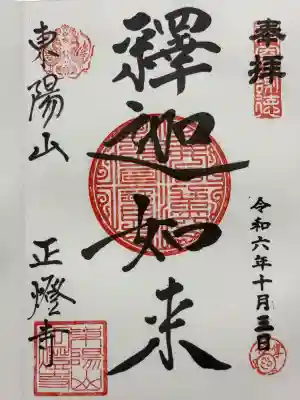 奉拝
令和六年十月三日
釋迦如来
東陽山
正燈寺